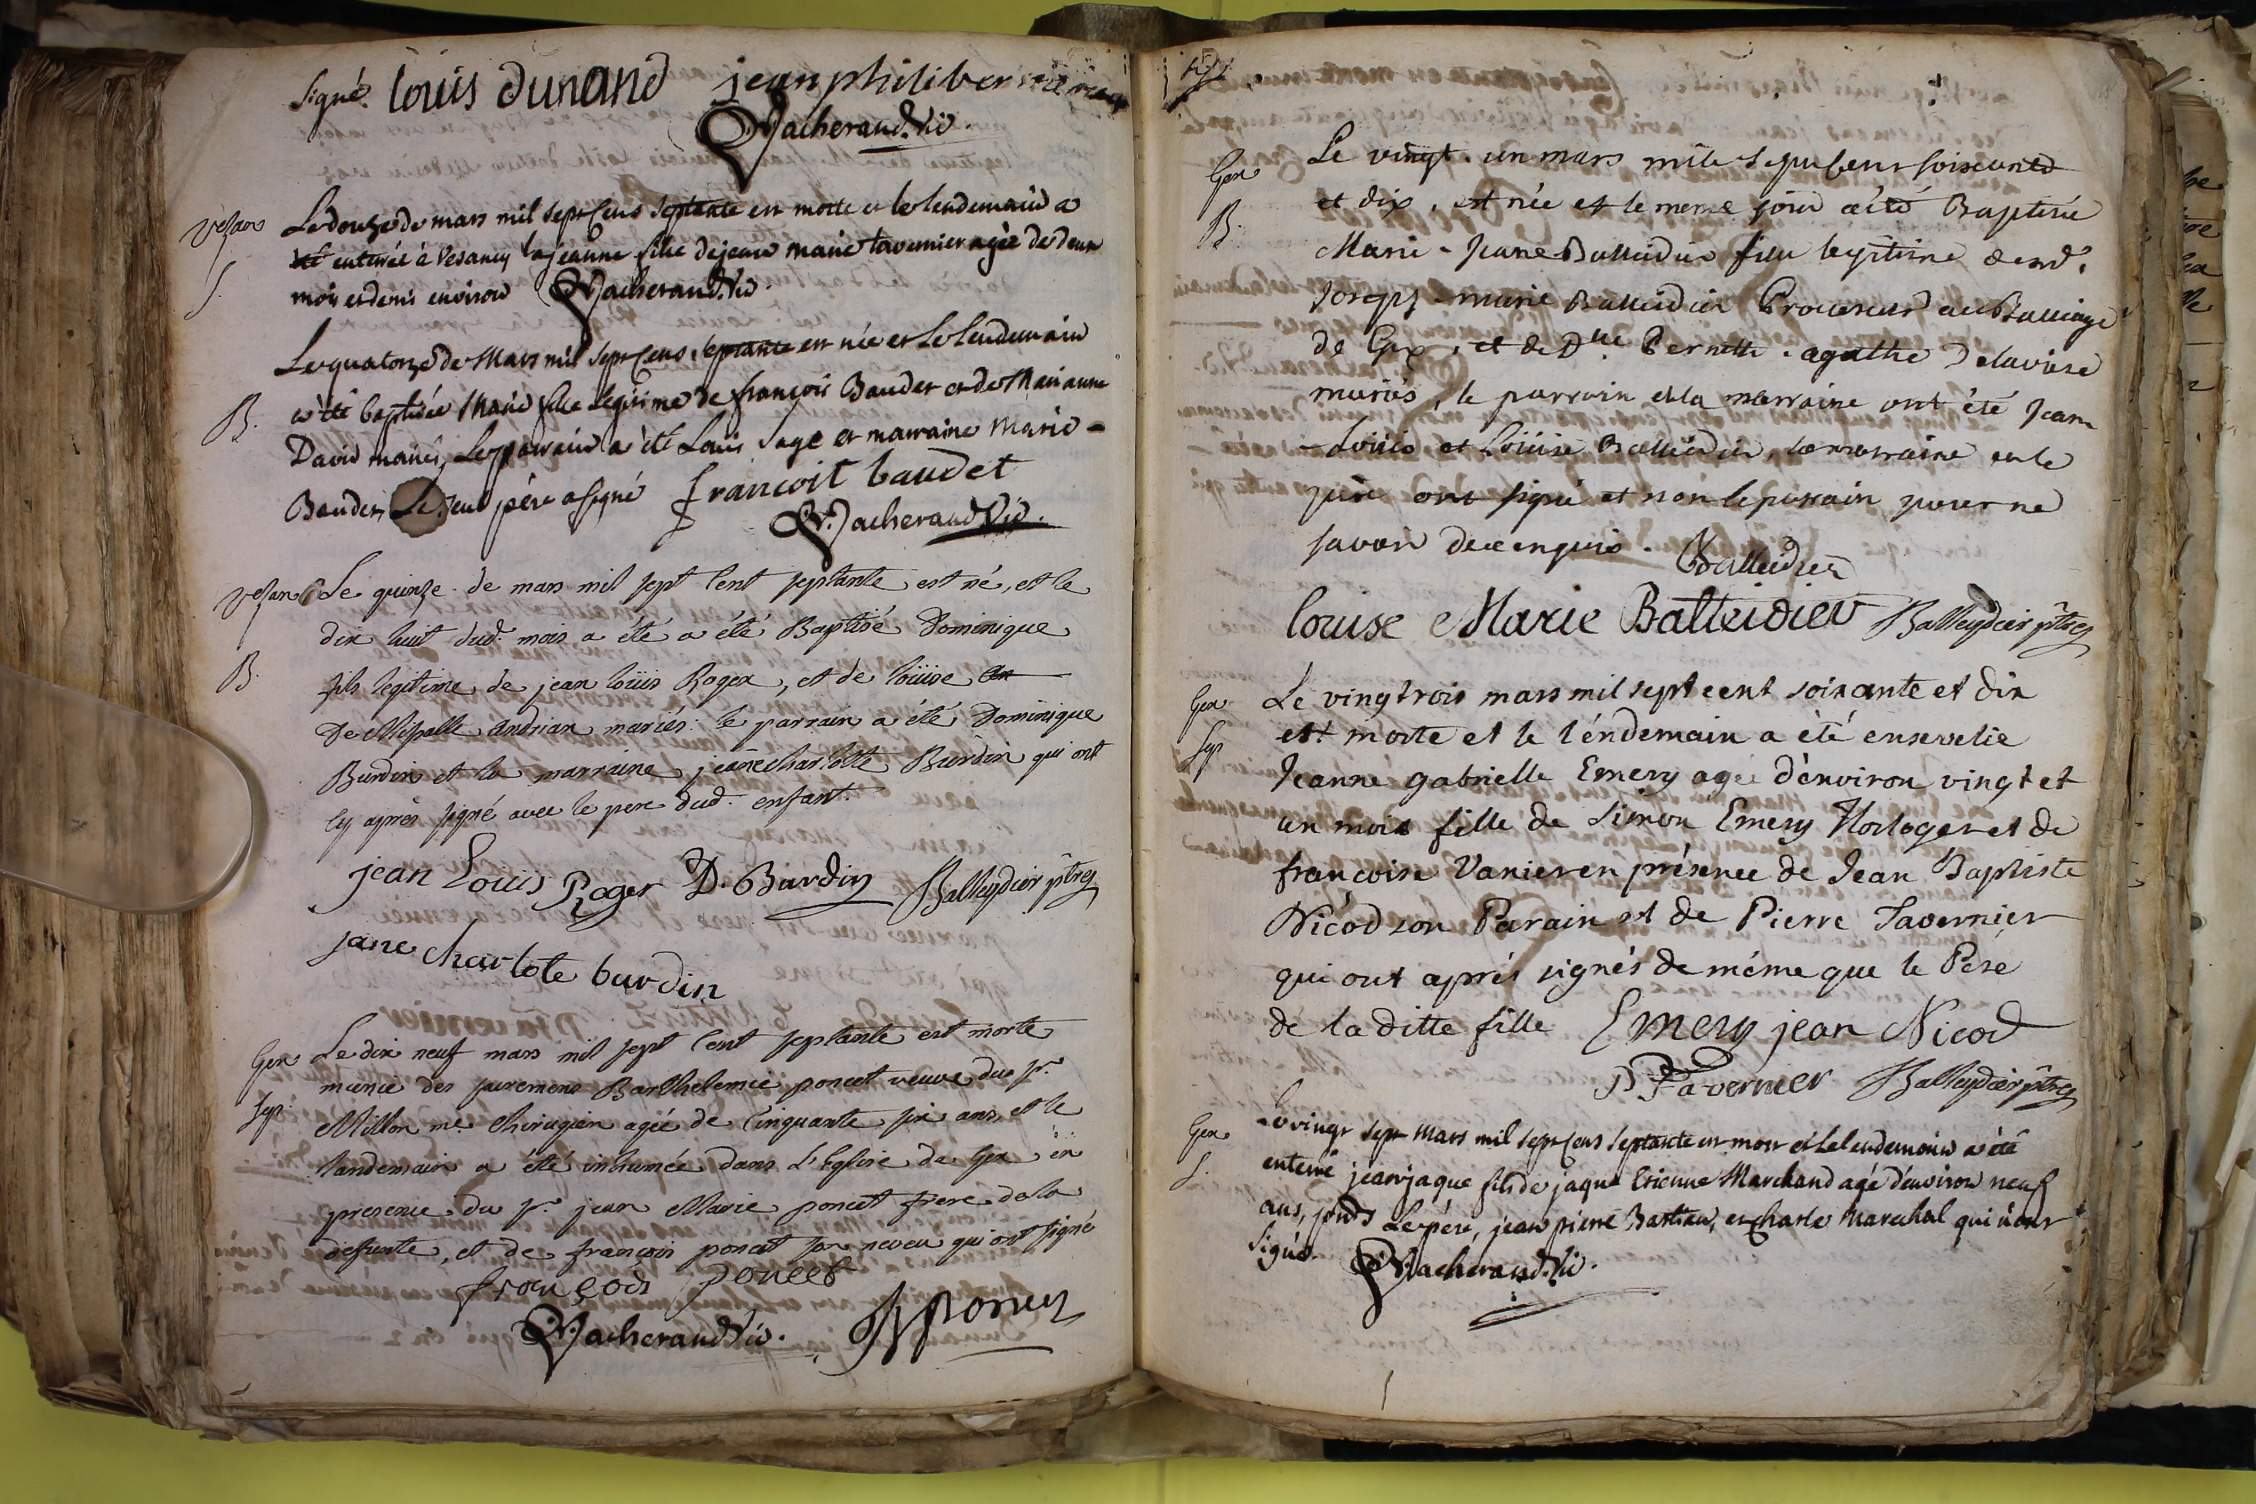 signé. louis dunand jean philiber
N. Vacherand. Vic.
vesan Le douze de mars mil sept Cens septante est morte et le lendemain a
été enterrée à Vesancy la jeaune fille de jean marie tavernier agée de deux
S. mois et demi environ N. Vacherand. Vic.
Le quatorze de Mars mil sept Cens septante est née et Le lendemain
B. a été baptisée Marie fille Legitime de françois Baudet et de Marianne
David mariés, Le parrain a été Louis Sage et marraine Marie -
Baudet, Le seul père a signé francoit baudet
N. Vacherand Vic.
vesan Le quinze de mars mil sept Cent septante est né, et le
dix huit dud. mois a été a été Baptisé Dominique
B. fils legitime de jean loüis Roger, et de loüise
De Andrian mariés: le parrain a été Dominique
Burdin et la marraine jeanne charlotte Burdin qui ont
Cy après signé avec le pere dud. enfant.
jean Louis Roger D. Burdin Balleydier ptre
jane charlote burdin
Gex Le dix neuf mars mil sept Cent septante est morte
munie des sacremens Barthelemie poncet veuve du sr.
Sep. Millon me. Chirugien agée de Cinquante six ans, et le
landemain a été inhumée dans L'Eglise de Gex en
presence du sr. jean Marie poncet frere de la
defunte, et de françois poncet son neveu qui ont signé
françois poncet
N. Vacherand Vic. poncet
Gex Le vingt-un mars mille sept Cent soixante
et dix, est née et le meme jour a été Baptisée
B. Marie-Jeane Balleidier fille legitime de md.
Joseph-marie Balleidier Procureur au Bailliage
de Gex, et de Dlle Pernette-agathe Delavise
mariés, le parrain et la marraine ont été Jean
-Loüis et Loüise Balleidier, la marraine et le
père ont signé et non le parrain pour ne
savoir de ce enquis. Balleidier
louise Marie Balleidier Balleydier ptre
Gex Le vingt trois mars mil sept cent soixante et dix
Sep est morte et le lendemain a èté ensevelie
Jeanne gabrielle Emery agée d'environ vingt et
un mois fille de Simon Emery Horloger et de
françoise Vanier en présence de Jean Baptiste
Nicod son Parain et de Pierre Tavernier
qui ont après signés de même que le Pere
de la ditte fille Emery jean Nicod
P Tavernier Balleydier ptre
Gex Le vingt sept Mars mil sept Cens septante est mort et Le lendemain a été
S. enterré jean jaque fils de jaque Etienne Marchand agé d'environ neuf
ans, Le père, jean pierre Bastian, et charle Marechal qui n'ont
signé. N. Vacherand. Vic.